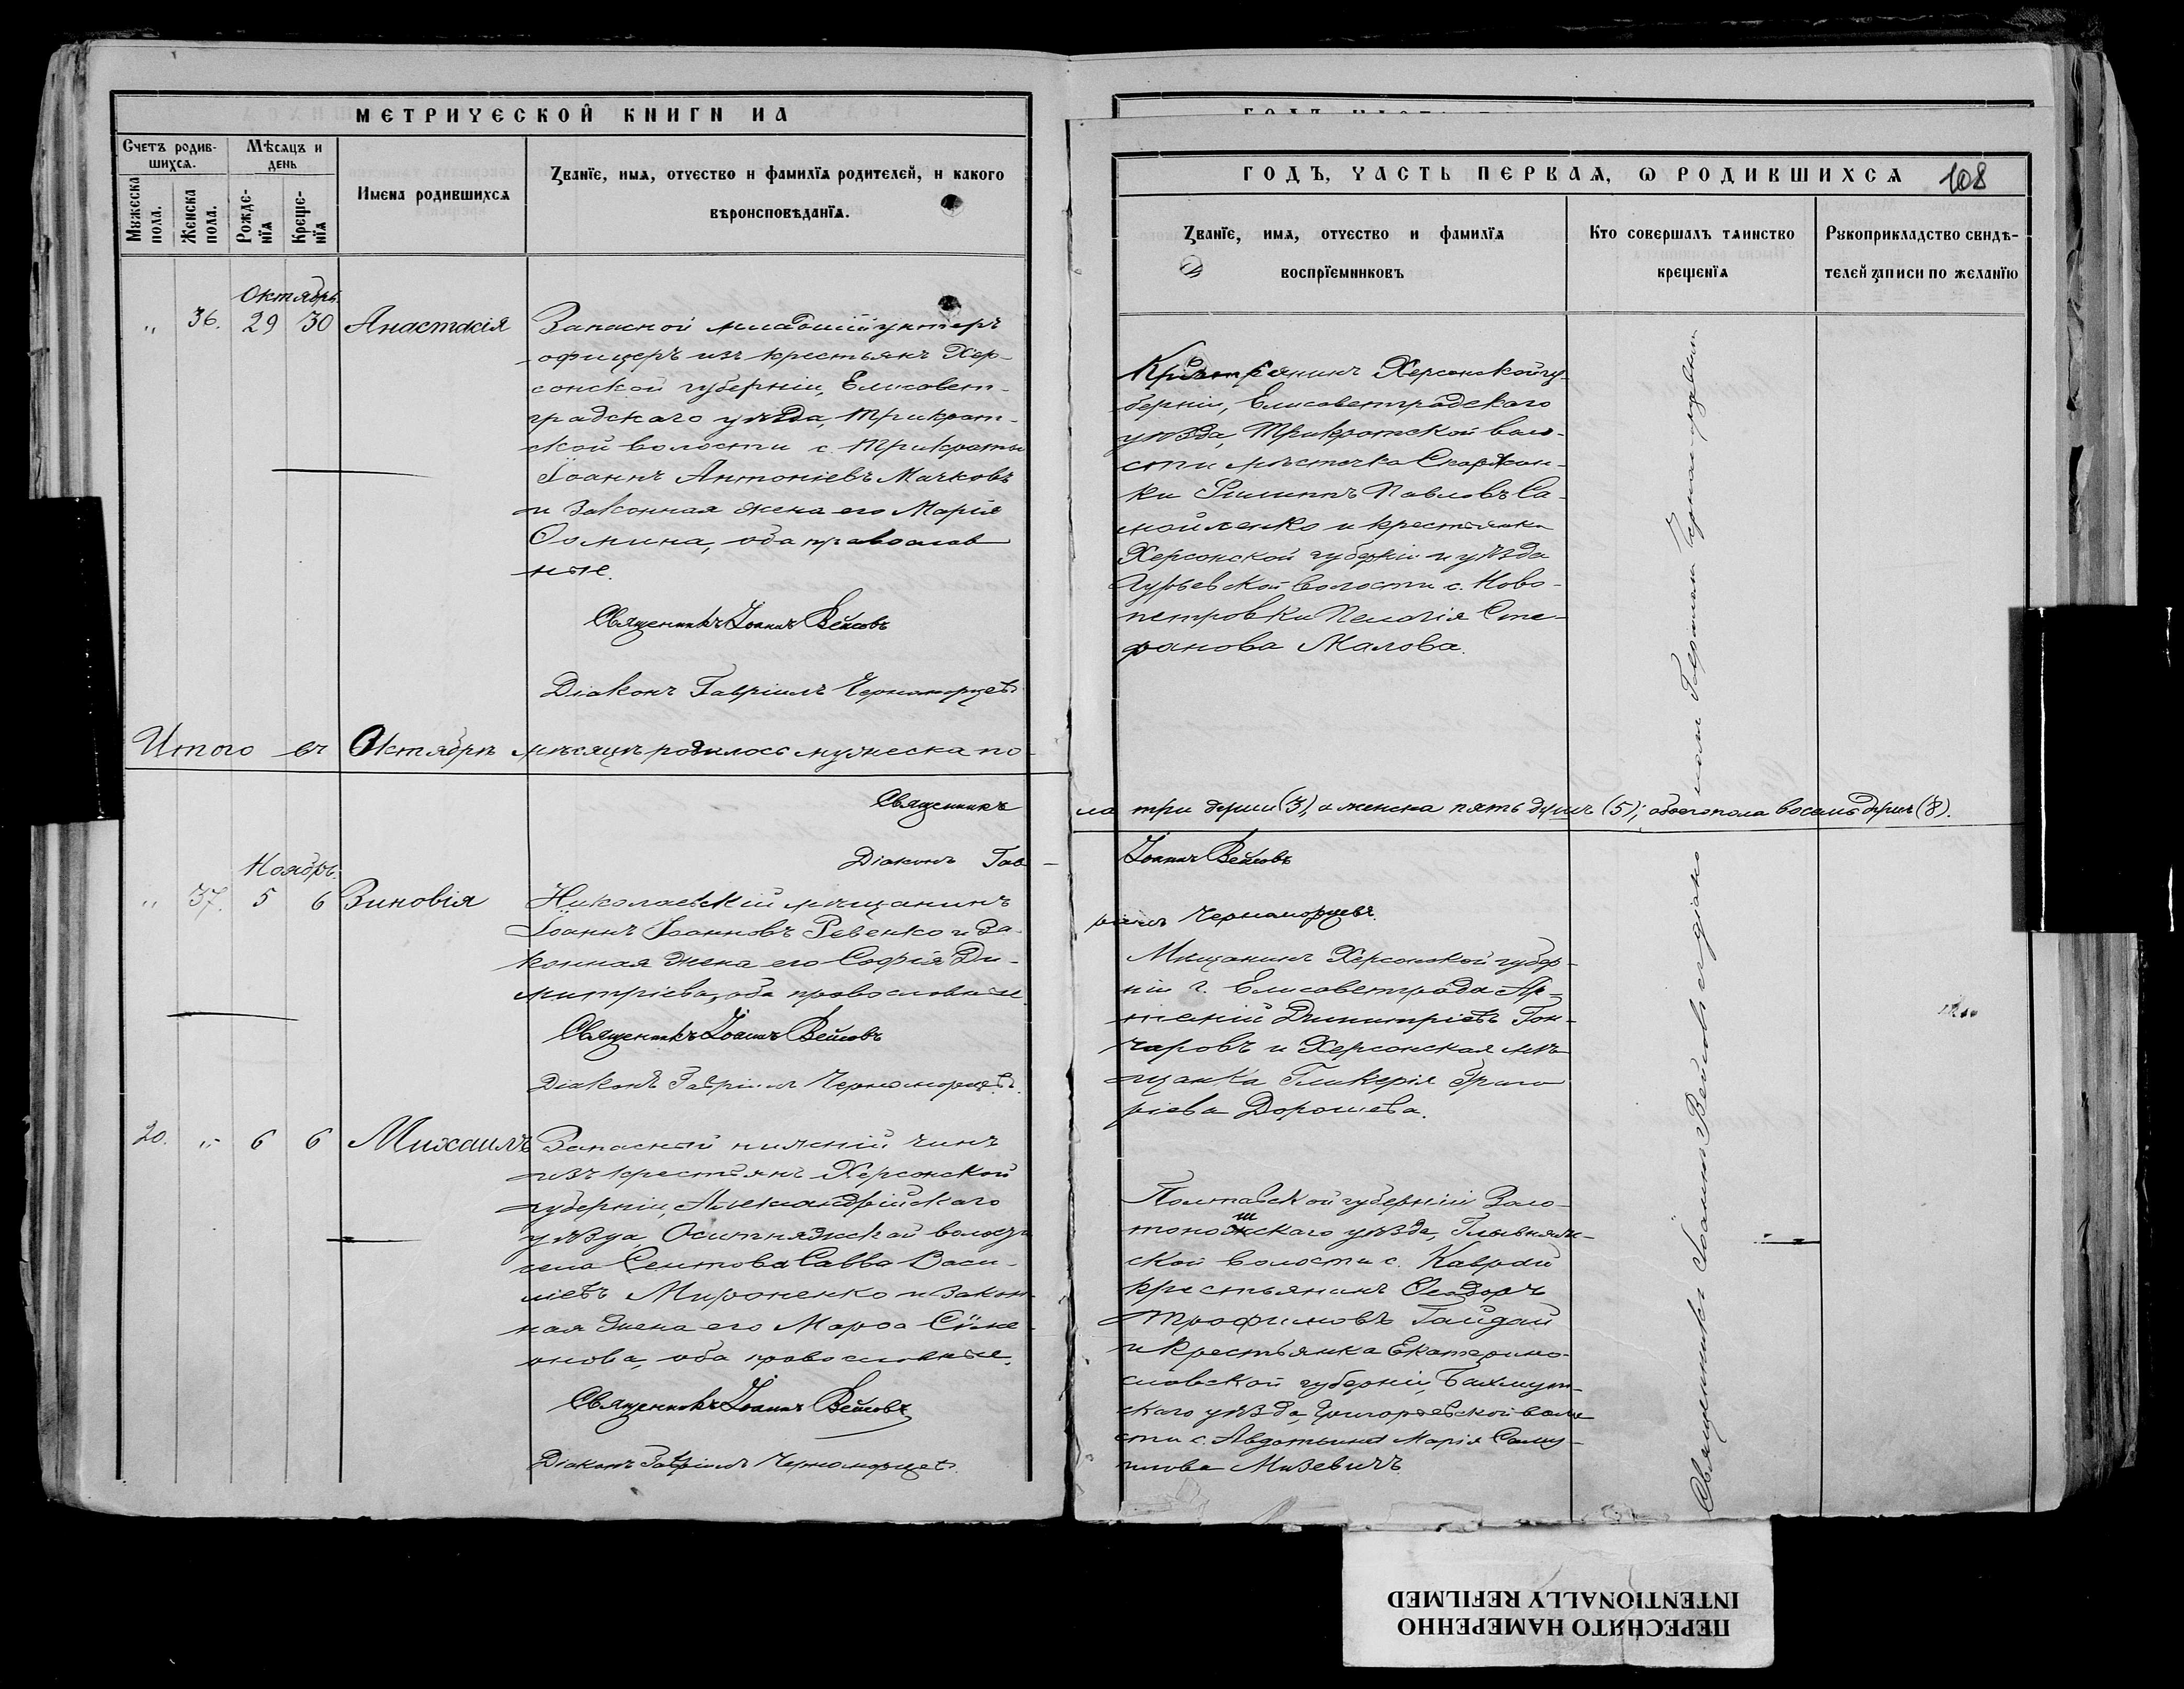 МЕТРИЧЕСКОЙ КНИГИ НА
Счетъ родив-
шихся.
Мѣсяцъ и
день
Мужеска
пола.
Женска
пола.
Рожде-
нїя
Креще-
нїя
Имена родившихся
Званїе, имя, отчество и фамилїя родителей, и какого
вѣроисповѣданїя.
Октябрь.
„ 36. 29 30 Анастасія
Запасной младшій унтеръ
офицеръ изъ крестьянъ Хер-
сонской губерніи, Елисавет-
градскаго уѣзда, Трикрат-
ской волости с. Трикраты
Іоаннъ Антоніевъ Мачковъ
и законная жена его Марія
Ѳомина, оба православ
ные.
Священникъ Іоаннъ Вейсовъ
Діаконъ Гавріилъ Черноморцевъ
Итого въ Октябрѣ мѣсяцѣ родилось мужеска по-
Священникъ
Діаконъ Гав-
Ноябрь.
„ 37. 5 6 Зиновія
Николаевскій мѣщанинъ
Іоаннъ Іоанновъ Ревенко и за-
конная жена его Софія Ди-
митріева, оба православные.
Священникъ Іоаннъ Вейсовъ
Діаконъ Гавріилъ Черноморцевъ.
20. „ 6 6 Михаилъ
Запасной нижній чинъ
изъ крестьянъ Херсонской
губерніи, Александрійскаго
уѣзда, Оситняжской волости
села Сентова Савва Васи-
ліевъ Мироненко и закон-
ная жена его Марѳа Сѵме-
онова, оба православные.
Священникъ Іоаннъ Вейсовъ
Діаконъ Гавріилъ Черноморцевъ.
ГОДЪ, ЧАСТЬ ПЕРВАЯ, Ѡ РОДИВШИХСЯ 108
Званїе, имя, отчество и фамилїя
воспрїемниковъ
Кто совершалъ таинство
крещенїя
Рукоприкладство свидѣ-
телей записи по желанїю
Крестьянинъ Херсонской гу-
берніи, Елисаветградскаго
уѣзда, Трикратской воло-
сти мѣстечка Скаржин-
ки Филиппъ Павловъ Са-
мойленко и крестьянка
Херсонской губерніи и уѣзда
Гурьевской волости с. Ново-
петровки Пелагія Сте-
фанова Малова.
ла три души (3), а женска пять душъ (5); обоего пола восемь душъ (8).
Іоаннъ Вейсовъ
ріилъ Черноморцевъ.
Мѣщанинъ Херсонской губер-
ніи г. Елисаветграда Ар-
темій Димитріевъ Гон-
чаровъ и Херсонская мѣ-
щанка Гликерія Григо
ріева Дорошева.
Полтавской губерніи Золо-
тоношскаго уѣзда,
ской волости с. Каврай
крестьянинъ Ѳеодоръ
Трофимовъ Гайдай
и крестьянка Екатерино-
славской губерніи, Бахмут-
скаго уѣзда, Григорьевской воло
сти с. Авдотьина Марія Саму-
илова Мизевичъ
Священникъ Іоаннъ Вейсовъ съ діакономъ Гавріиломъ Черноморцевымъ
ПЕРЕСНЯТО НАМЕРЕННО
INTENTIONALLY REFILMED